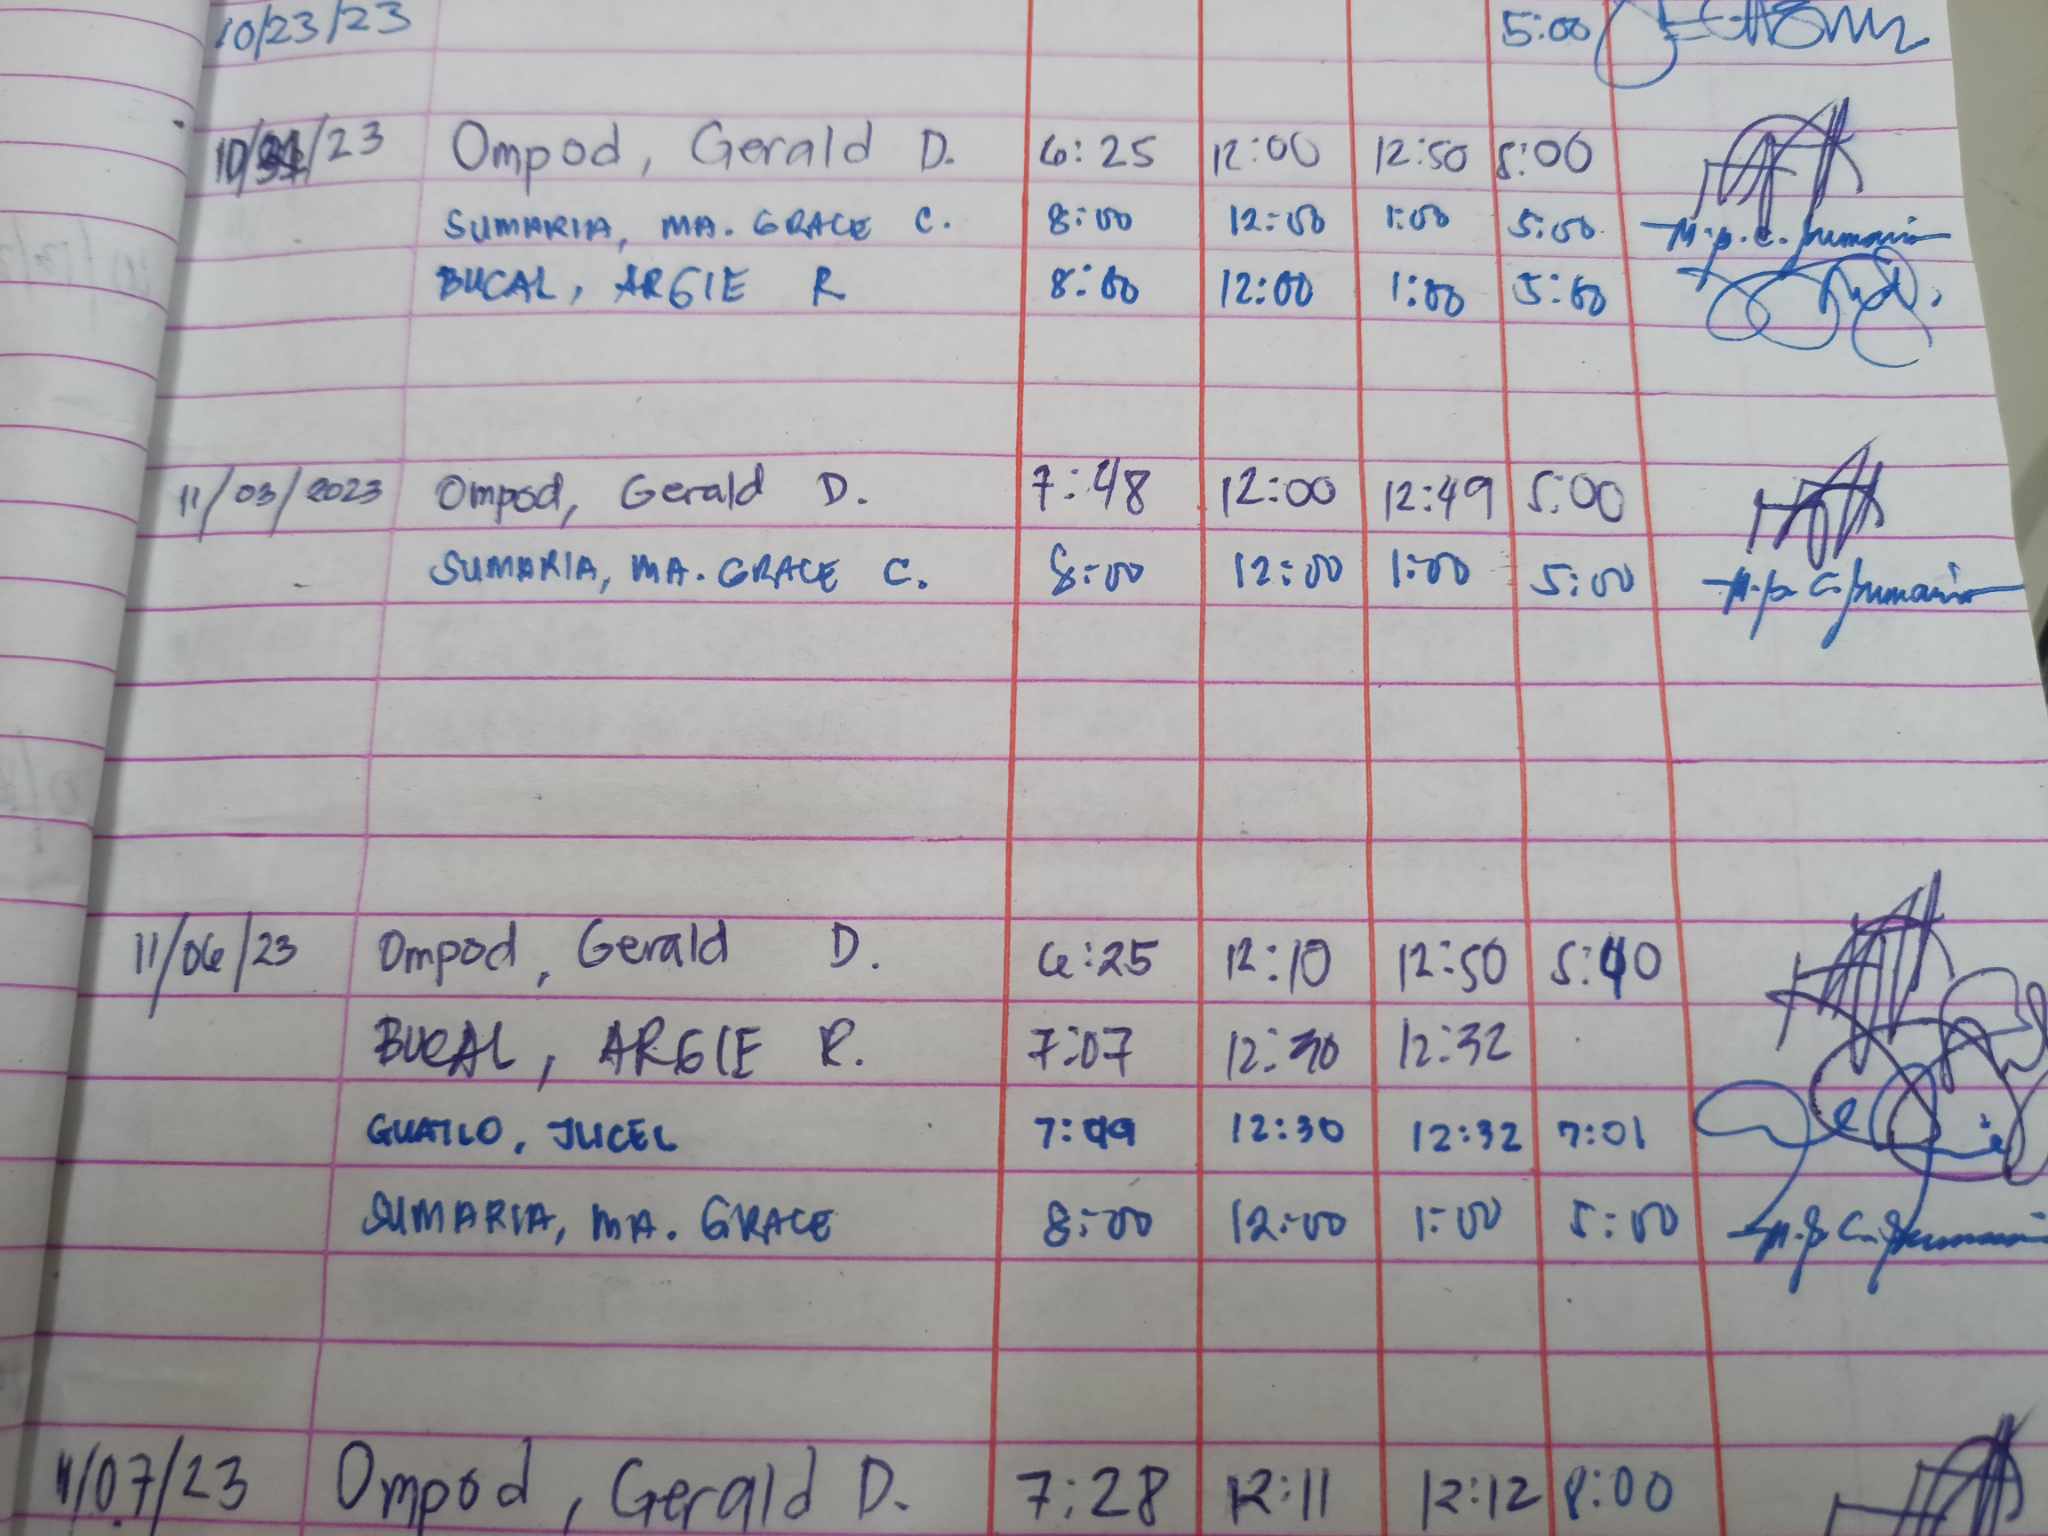 10/23/23 5:00
10/31/23 Ompod, Gerald D. 6:25 12:00 12:50 5:00
SUMARIA, MA. GRACE C. 8:00 12:00 1:00 5:00 M.g.C. Sumaria
BUCAL, ARGIE R 8:00 12:00 1:00 5:00
11/03/2023 Ompod, Gerald D. 7:48 12:00 12:49 5:00
SUMARIA, MA. GRACE C. 8:00 12:00 1:00 5:00 M.g. C. Sumaria
11/06/23 Ompod, Gerald D. 6:25 12:10 12:50
BUCAL, ARGIE R. 7:07 12:30 12:32
GUATLO, JUCEL 12:30 12:32 7:01
SUMARIA, MA. GRACE 8:00 12:00 1:00 5:00 M.g. C. Sumaria
11/07/23 Ompod, Gerald D. 7:28 12:11 12:12 8:00